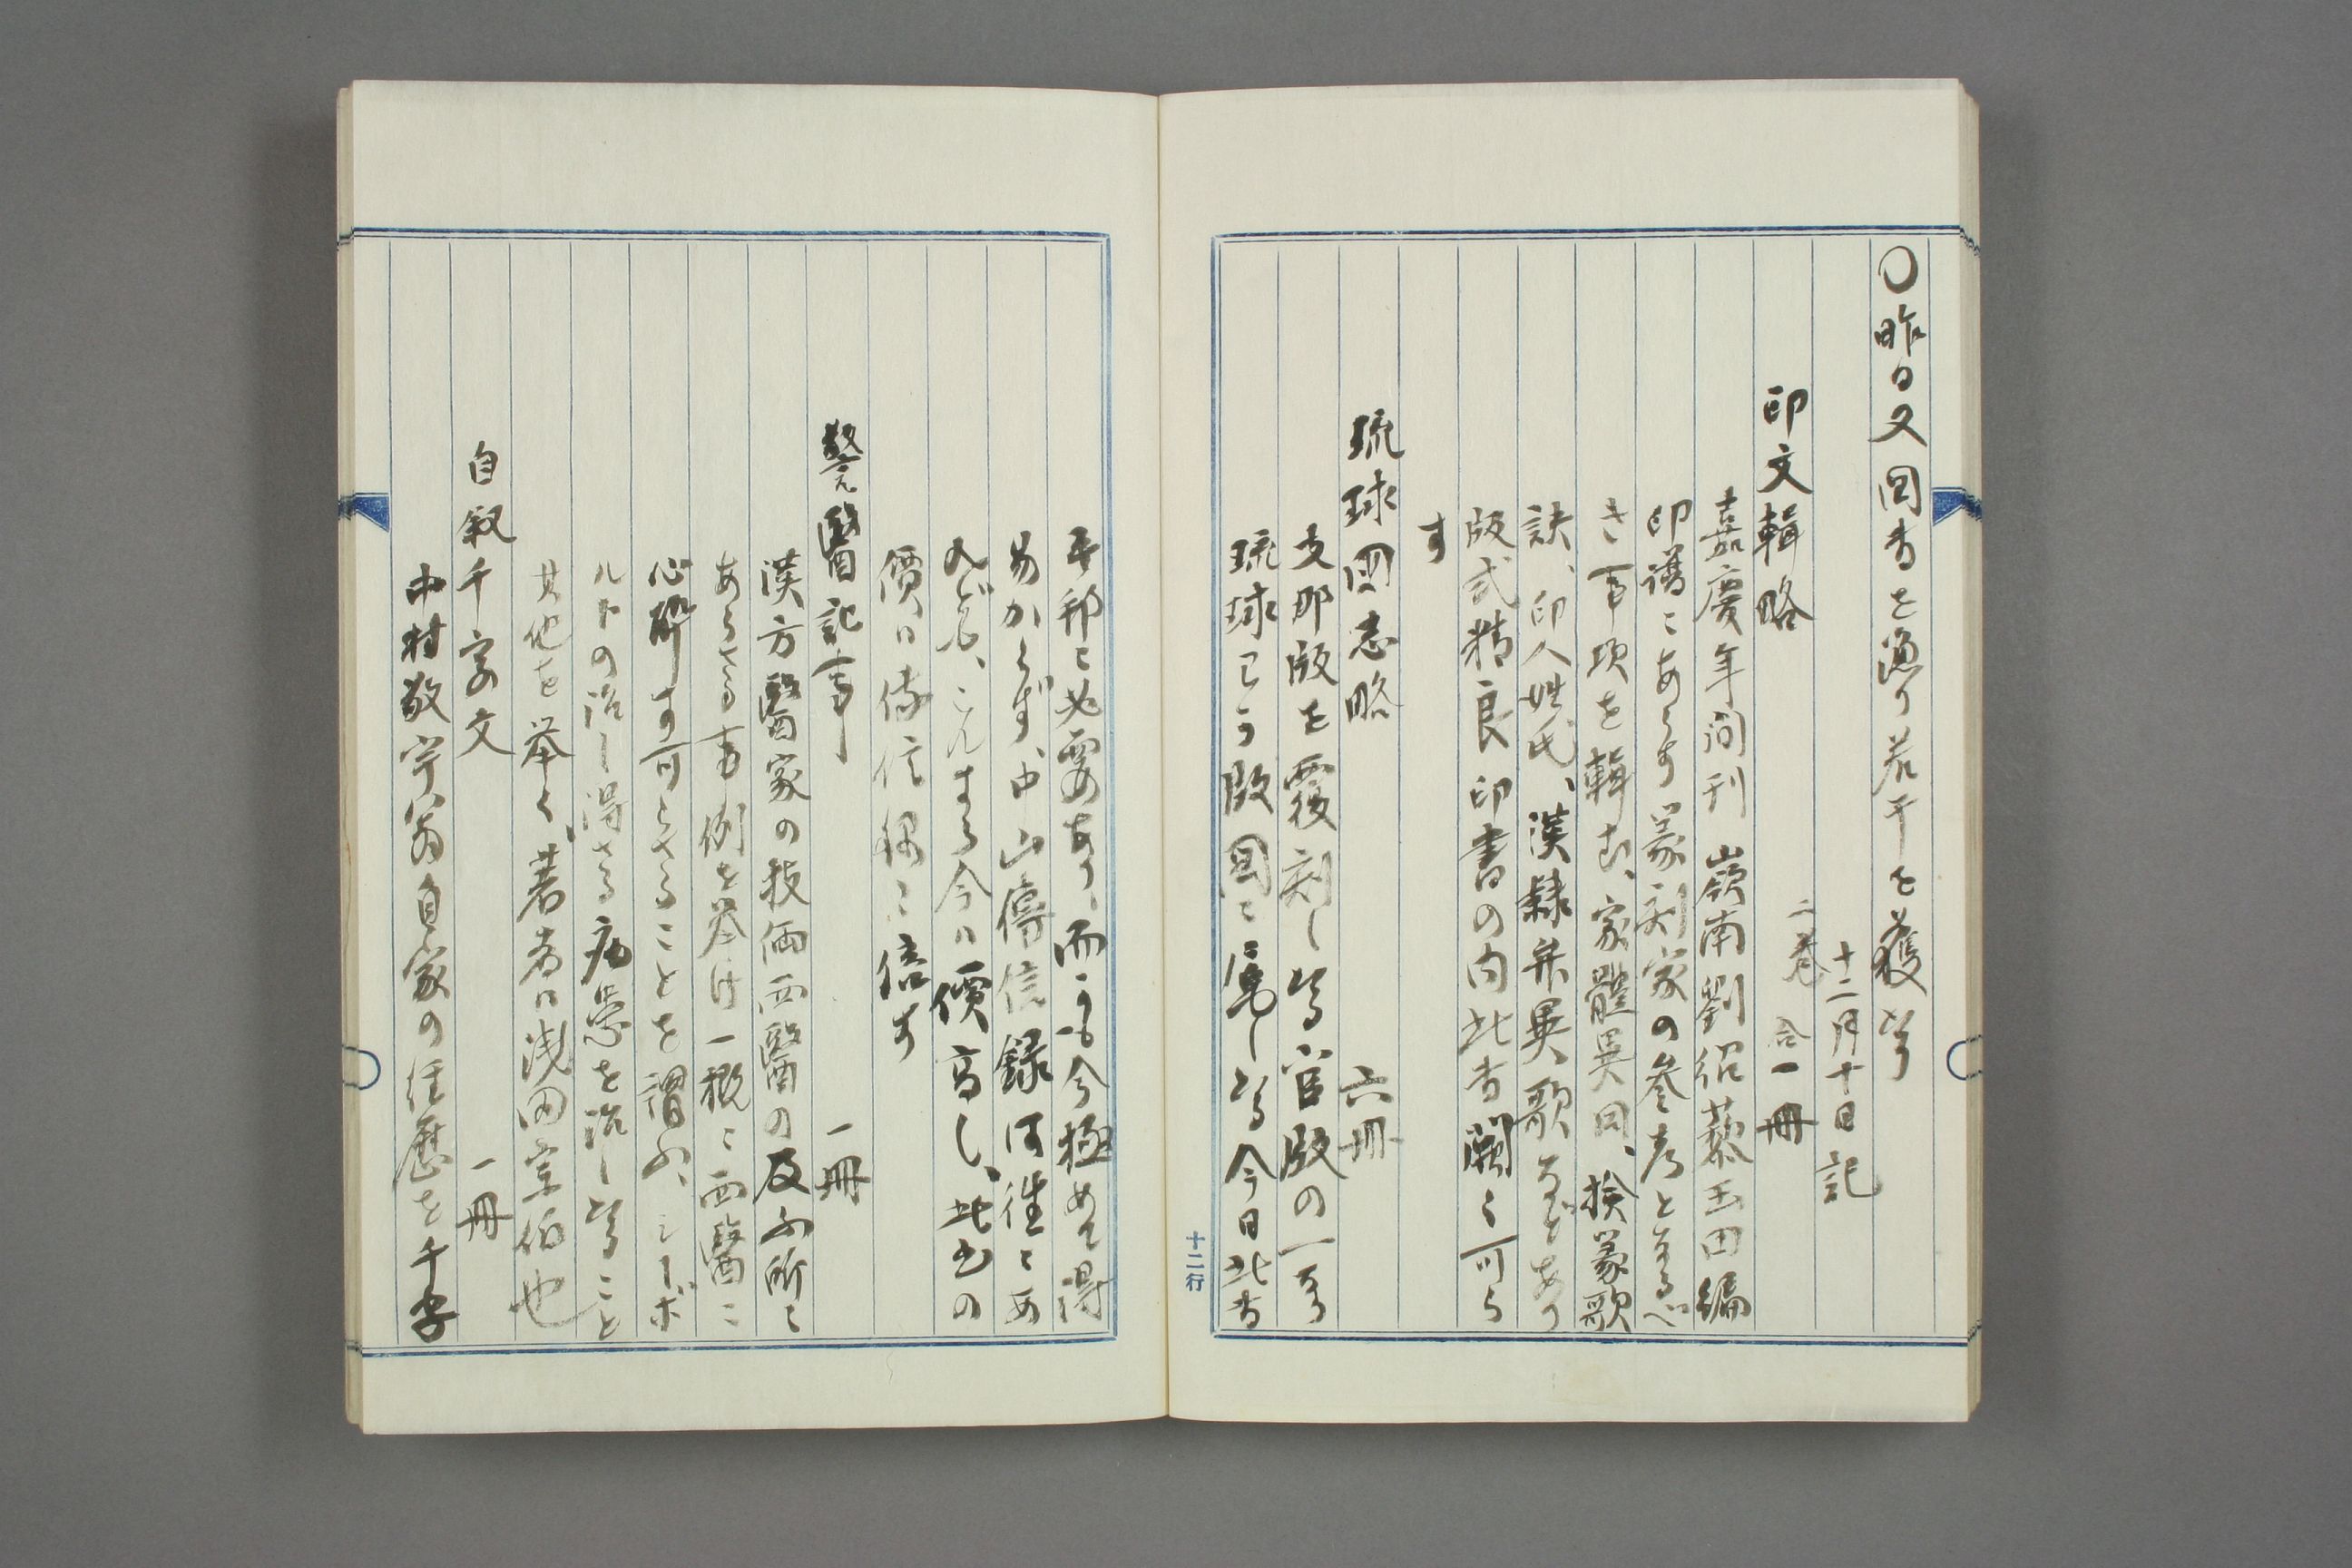 〇昨日又回書を漁り若干を獲たり
十二月十日記
印文輯略 二巻 合一冊
嘉慶年間刊 嶺南劉紹藜玉田編
印譜にあらす篆刻家の参考となるべ
き事項を輯む、家體異同、検篆歌
訣、印人姓氏、漢隸弁異歌などあり
版式精良印書の内此書闕く可ら
す
琉球国志略 六冊
支那版を覆刻したる官版の一なり
琉球已に我国に属したる今日此書
十二行
本邦に必要あり、而かも今極めて得
易からず、中山傳信録は往々あ
れども、これまた今は價高し、此書の
價は傳信録に倍す
警醫記事 一冊
漢方醫家の技倆西醫の及ふ所に
あらさる事例を挙け一概に西醫に
心酔す可らさることを謂ふ、シーボ
ルトの治し得さる病患を治したること
其他を挙く、著者は浅田宗伯也
自叙千字文 一冊
中村敬宇翁自家の経歴を千字